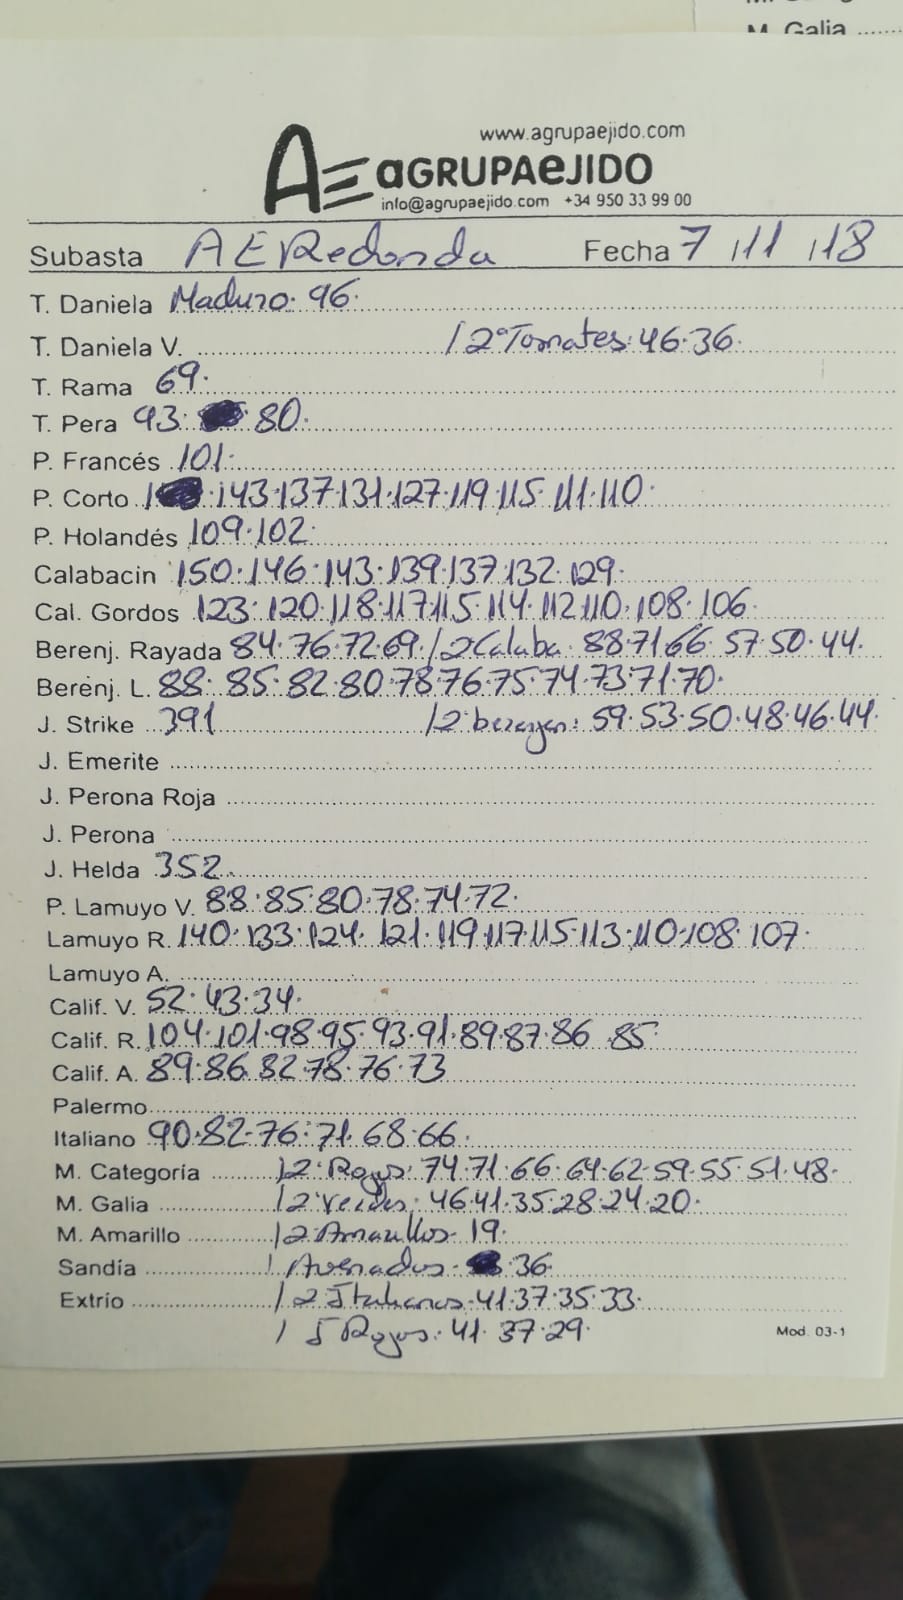 M. Galia
www.agrupaejido.com
AE AGRUPAEJIDO
info@agrupaejido.com +34 950 33 99 00
Subasta AE Redonda Fecha 7/11/18
T. Daniela Maduro. 96.
T. Daniela V. / 2ª Tomates: 46.36.
T. Rama 69.
T. Pera 93. 80.
P. Francés 101.
P. Corto 143.137.131.127.119.115.111.110.
P. Holandés 109.102.
Calabacin 150.146.143.139.137.132.129.
Cal. Gordos 123.120.118.117.115.114.112.110.108.106.
Berenj. Rayada 84.76.72.69./2 Calaba. 88.71.66.57.50.44.
Berenj. L. 88.85.82.80.78.76.75.74.73.71.70.
J. Strike 391 /2 berenjen: 59.53.50.48.46.44.
J. Emerite
J. Perona Roja
J. Perona
J. Helda 352.
P. Lamuyo V. 88.85.80.78.74.72.
Lamuyo R. 140.133.124.121.119.117.115.113.110.108.107.
Lamuyo A.
Calif. V. 52.43.34.
Calif. R. 104.101.98.95.93.91.89.87.86 85.
Calif. A. 89.86.82.78.76.73
Palermo
Italiano 90.82.76.71.68.66.
M. Categoría /2 Rojos: 74.71.66.64.62.59.55.51.48.
M. Galia /2 Verdes: 46.41.35.28.24.20.
M. Amarillo /2 Amarillos. 19.
Sandía / Asenados. 36.
Extrío /2 Italianos. 41.37.35.33.
/ 5 Rojos: 41.37.29.
Mod. 03-1